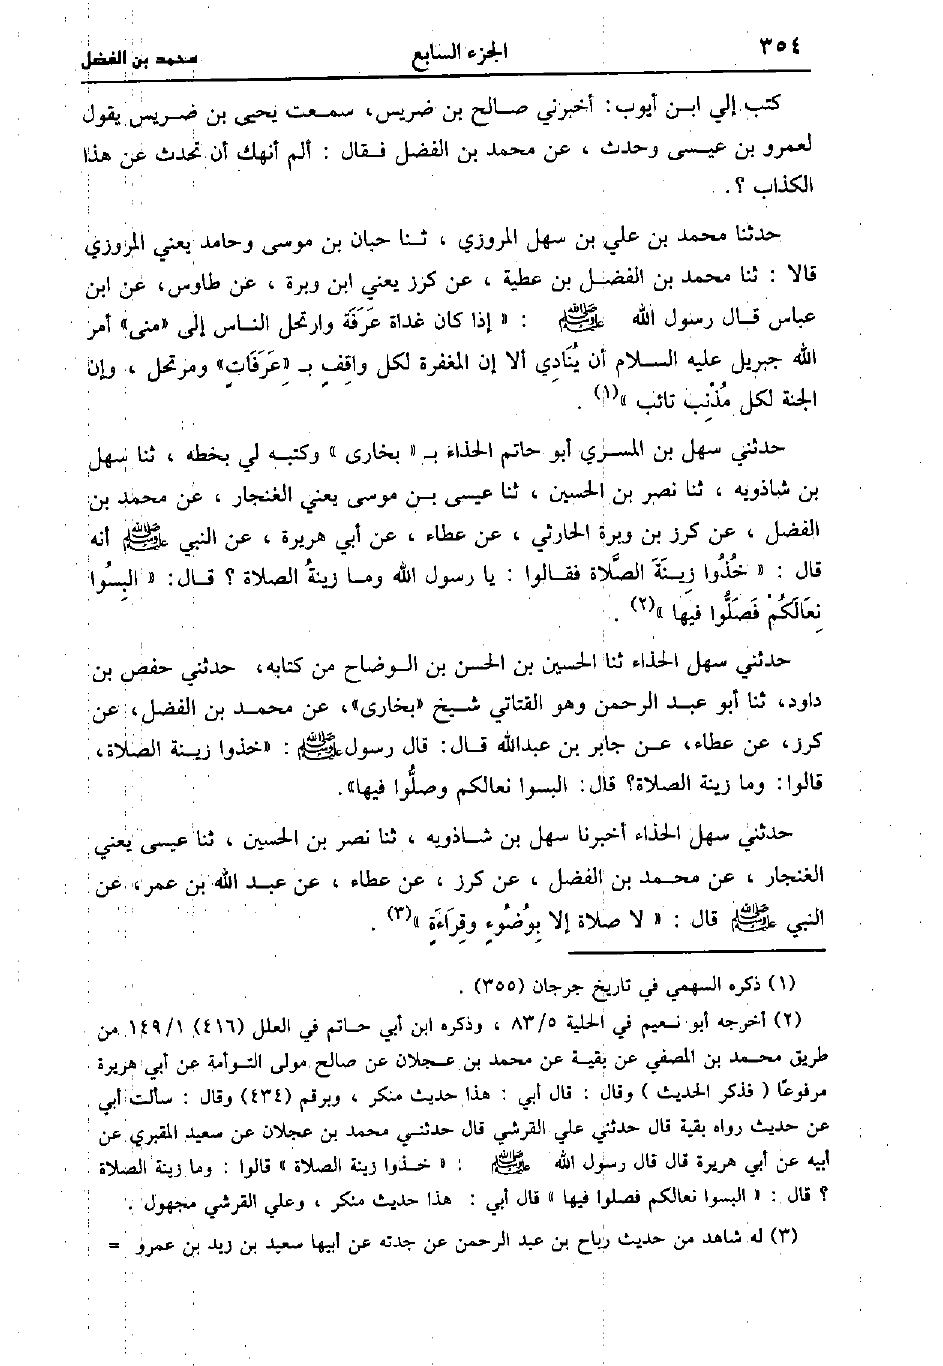 ٣٥٤ الجزء السابع محمد بن الفضل
كتب إلي ابن أيوب: أخبرني صالح بن ضريس، سمعت يحيى بن ضريس يقول
لعمرو بن عيسى وحدث ، عن محمد بن الفضل فقال : ألم أنهك أن تحدث عن هذا
الكذاب ؟.
حدثنا محمد بن علي بن سهل المروزي ، ثنا حبان بن موسى وحامد يعني المروزي
قالا : ثنا محمد بن الفضل بن عطية ، عن كرز يعني ابن وبرة ، عن طاوس، عن ابن
عباس قال رسول الله ﷺ : « إذا كان غداة عَرَفَة وارتحل الناس إلى «منى» أمر
الله جبريل عليه السلام أن يُنَادِي ألا إن المغفرة لكل واقِفٍ بـ «عَرَفَاتٍ» ومرتحل ، وإن
الجنة لكل مُذْنِب تائب »(١) .
حدثني سهل بن السري أبو حاتم الحذاء بـ « بخارى » وكتبه لي بخطه ، ثنا سهل
بن شاذويه ، ثنا نصر بن الحسين ، ثنا عيسى بن موسى يعني الغنجار ، عن محمد بن
الفضل ، عن كرز بن وبرة الحارثي ، عن عطاء ، عن أبي هريرة ، عن النبي ﷺ أنه
قال : « خُذُوا زِينَةَ الصَّلاة فقالوا : يا رسول الله وما زينةُ الصلاة ؟ قال: « البِسُوا
نِعَالَكُمْ فَصَلُّوا فيها »(٢) .
حدثني سهل الحذاء ثنا الحسين بن الحسن بن الوضاح من كتابه، حدثني حفص بن
داود، ثنا أبو عبد الرحمن وهو القتاتي شيخ «بخارى»، عن محمد بن الفضل، عن
كرز، عن عطاء، عن جابر بن عبدالله قال: قال رسول ﷺ : «خذوا زينة الصلاة،
قالوا: وما زينة الصلاة؟ قال: البسوا نعالكم وصلُّوا فيها».
حدثني سهل الحذاء أخبرنا سهل بن شاذويه ، ثنا نصر بن الحسين ، ثنا عيسى يعني
الغنجار ، عن محمد بن الفضل ، عن كرز ، عن عطاء ، عن عبد الله بن عمر، عن
النبي ﷺ قال : « لا صلاة إلا بِوُضُوءٍ وقِرَاءَةٍ »(٣) .
(١) ذكره السهمي في تاريخ جرجان (٣٥٥) .
(٢) أخرجه أبو نعيم في الحلية ٨٣/٥ ، وذكره ابن أبي حاتم في العلل (٤١٦) ١٤٩/١ من
طريق محمد بن المصفي عن بقية عن محمد بن عجلان عن صالح مولى التوأمة عن أبي هريرة
مرفوعًا ( فذكر الحديث ) وقال : قال أبي : هذا حديث منكر ، وبرقم (٤٣٤) وقال : سألت أبي
عن حديث رواه بقية قال حدثني علي القرشي قال حدثني محمد بن عجلان عن سعيد المقبري عن
أبيه عن أبي هريرة قال قال رسول الله ﷺ : « خذوا زينة الصلاة » قالوا : وما زينة الصلاة
؟ قال : « البسوا نعالكم فصلوا فيها » قال أبي : هذا حديث منكر ، وعلي القرشي مجهول .
(٣) له شاهد من حديث رباح بن عبد الرحمن عن جدته عن أبيها سعيد بن زيد بن عمرو =